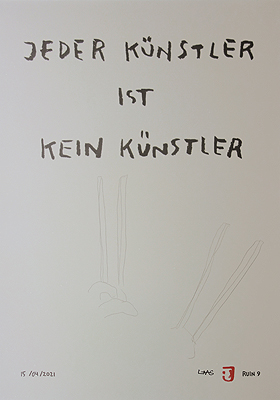 JEDER KÜNSTLER
IST
KEIN KÜNSTLER
15/04/2021
RUIN 9